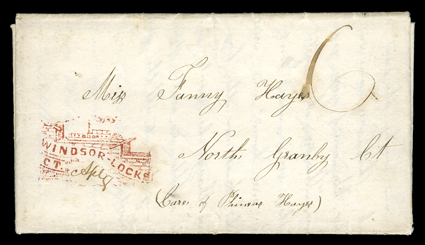 6
Miss Fanny Hayes
WINDSOR-LOCKS
CT.
North Granby Ct
(Care of Hayes)